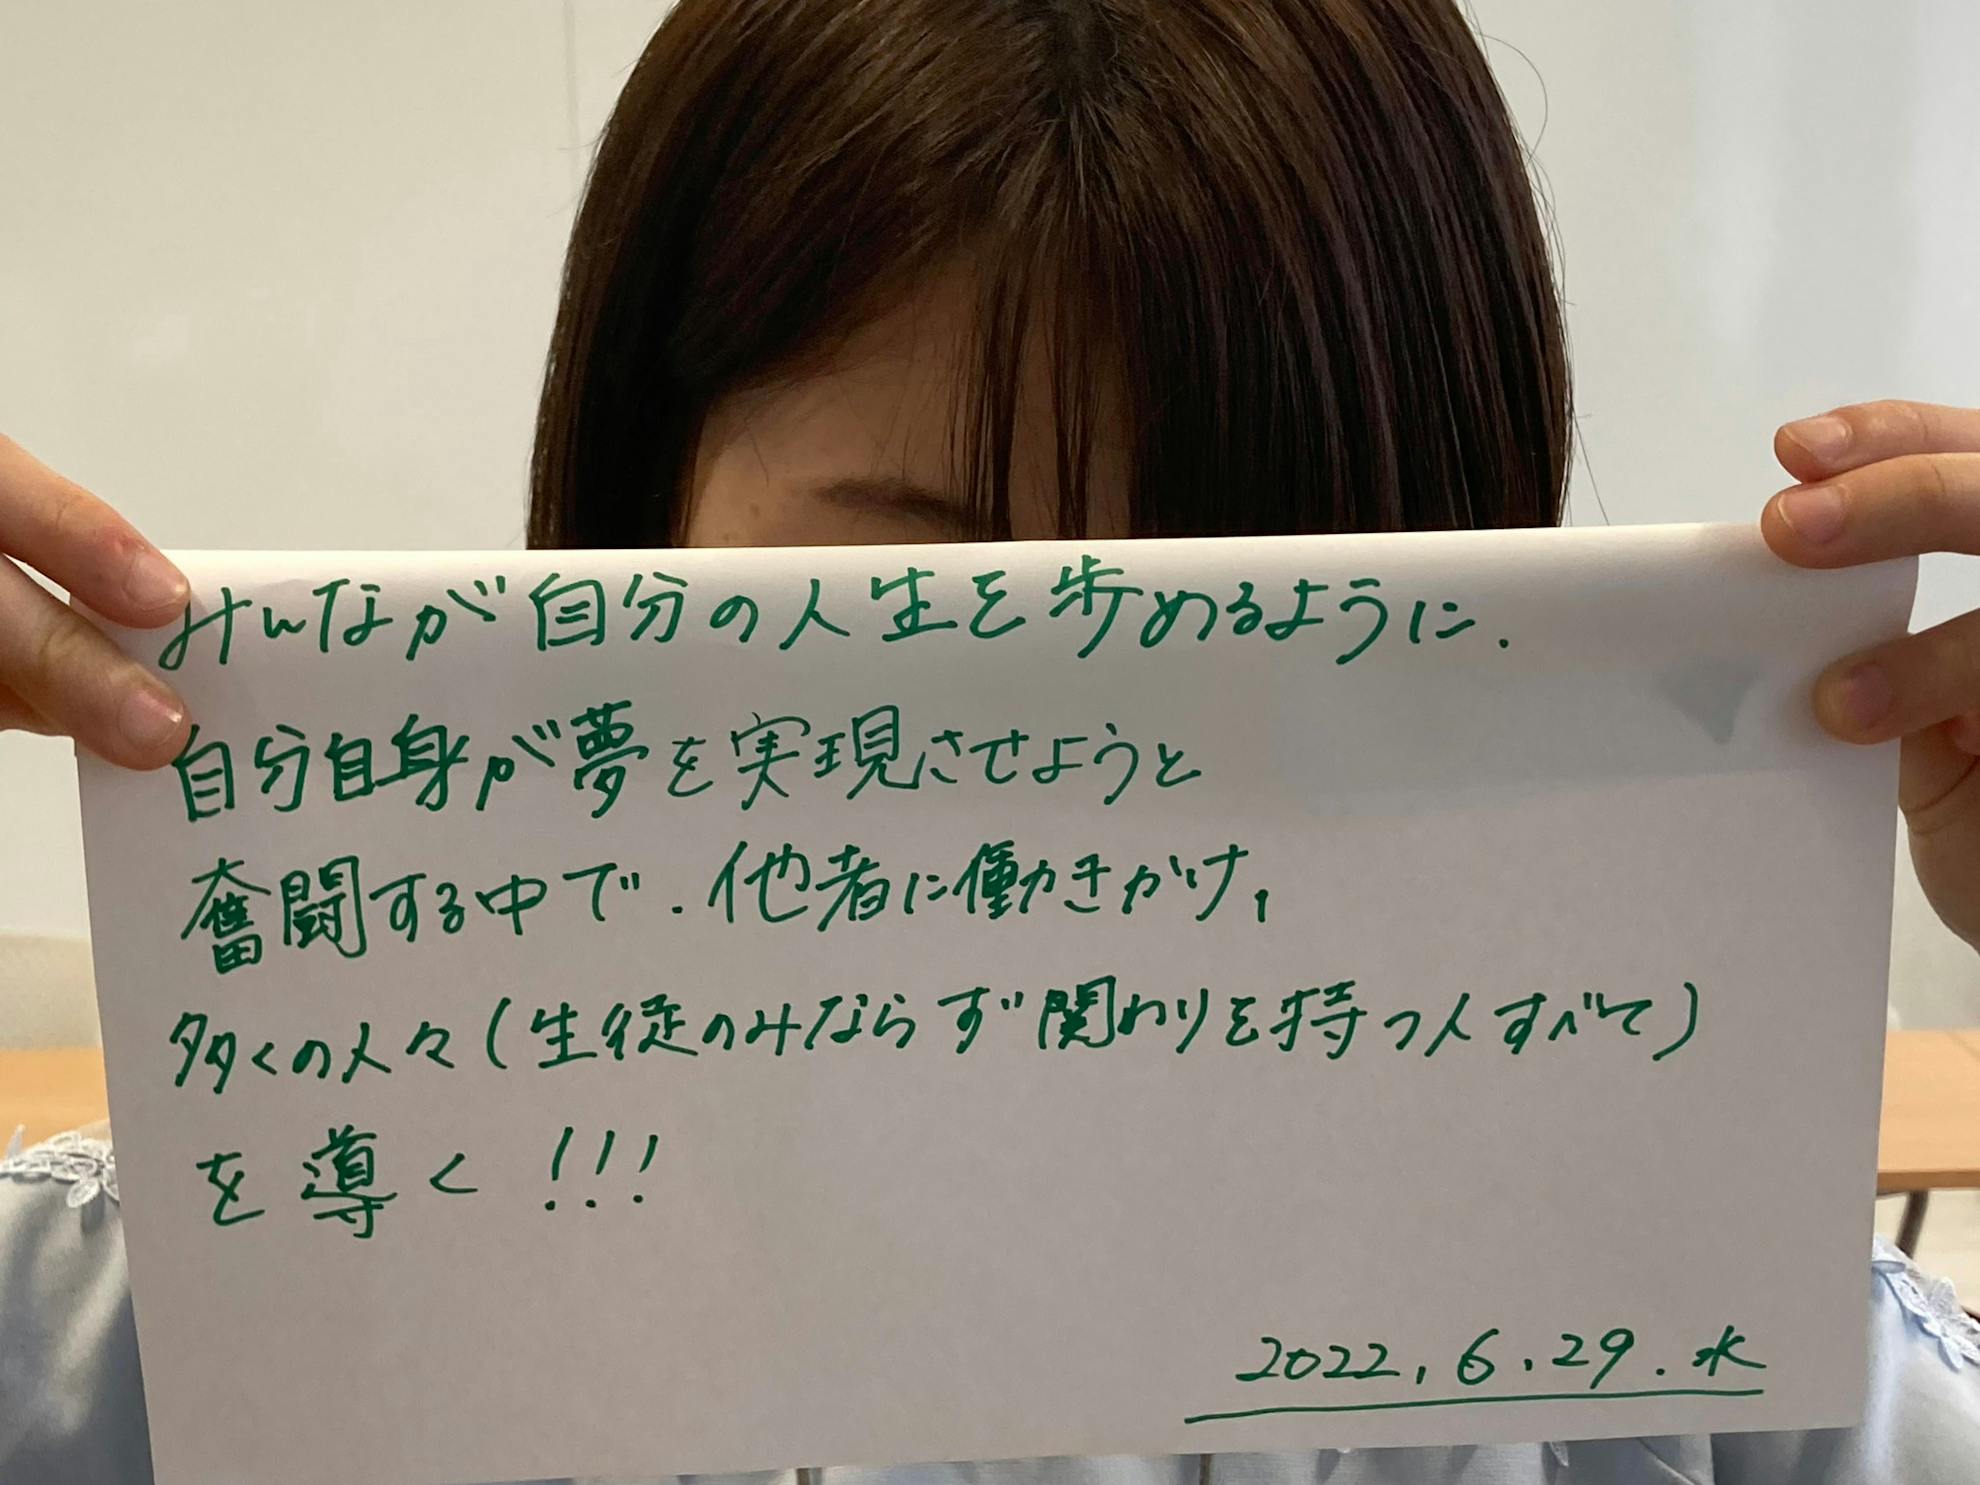 みんなが自分の人生を歩めるように.
自分自身が夢を実現させようと
奮闘する中で.他者に働きかけ,
多くの人々(生徒のみならず関わりを持つ人すべて)
を導く!!!
2022.6.29.水